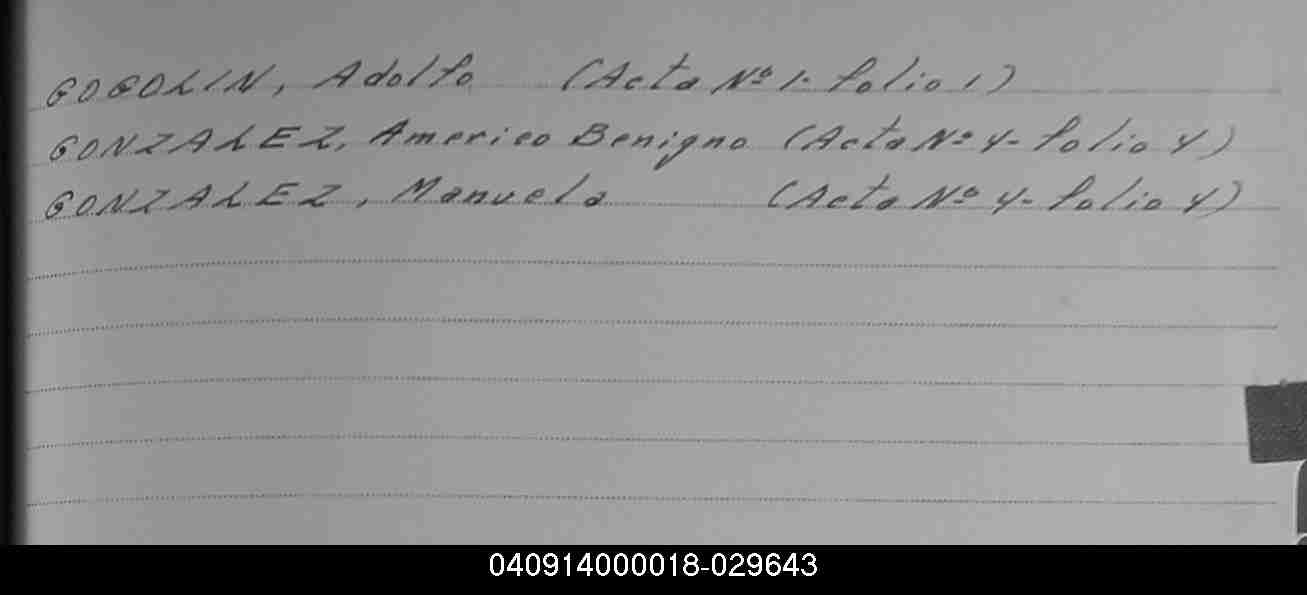 GOGOLIN, Adolfo (Acta Nº 1- folio 1)
GONZALEZ, Americo Benigno (Acta Nº 4- folio 4)
GONZALEZ, Manuela (Acta Nº 4- folio 4)
040914000018-029643